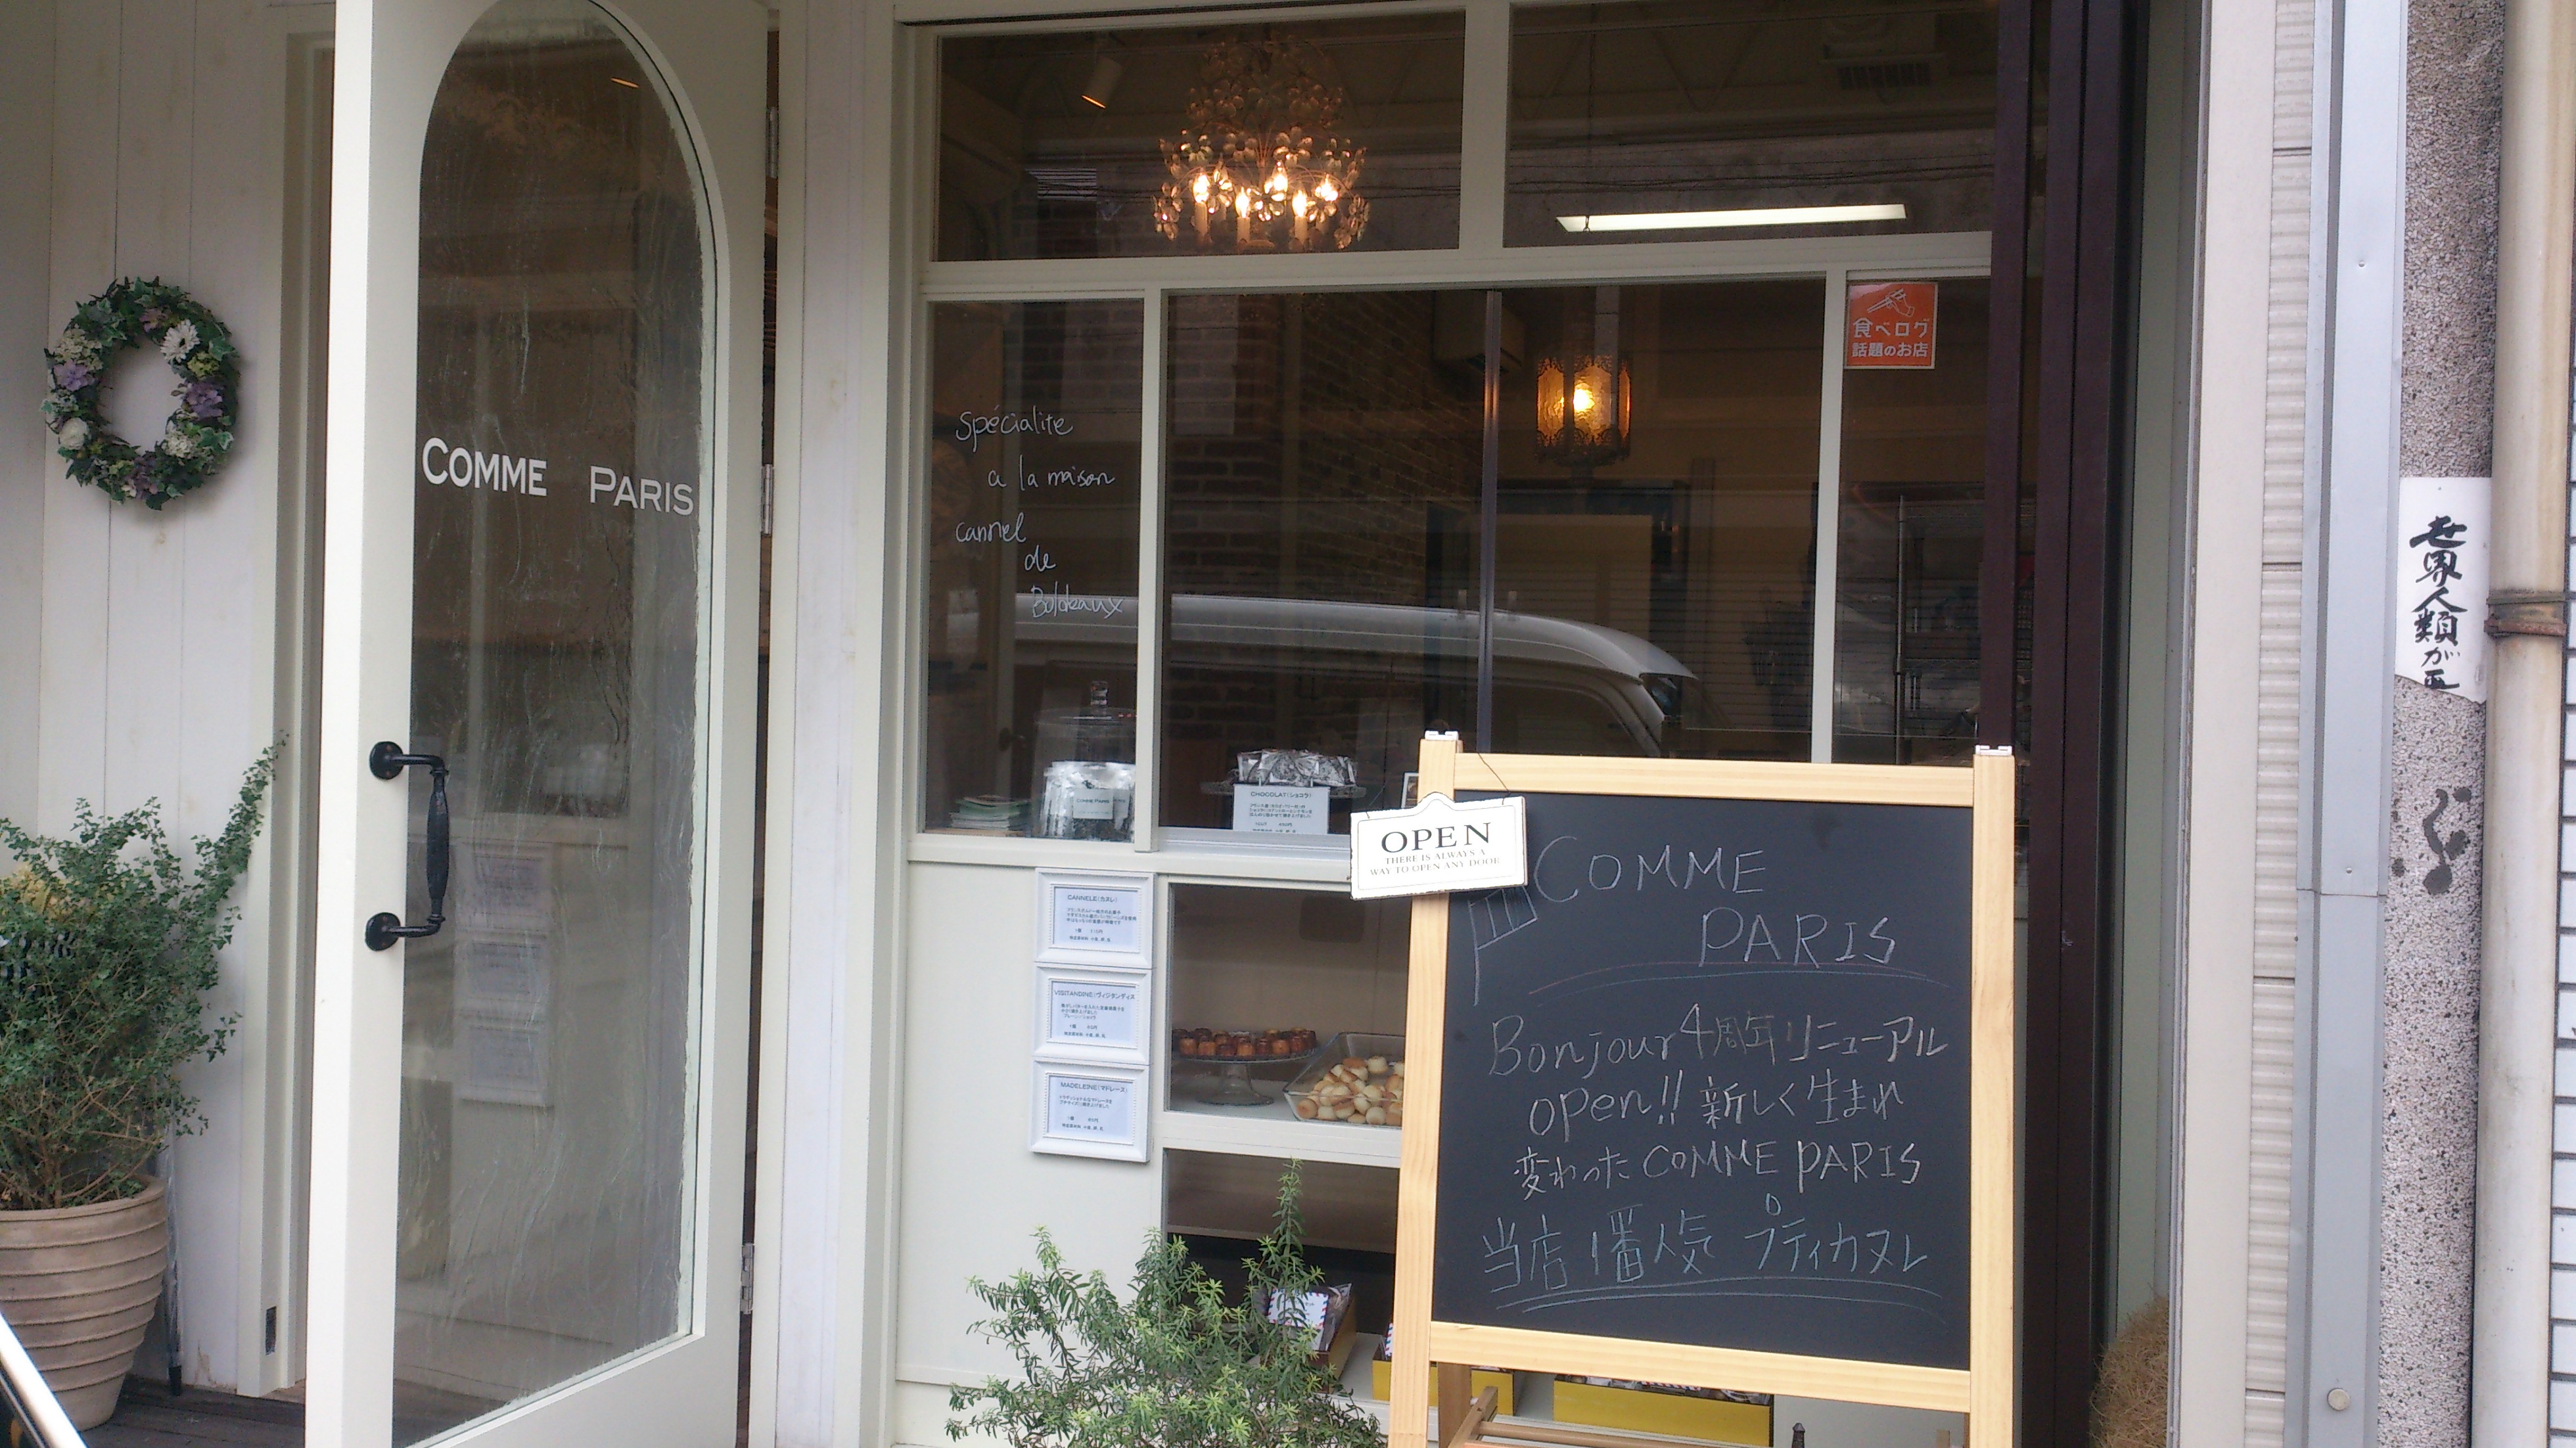 COMME PARIS
spécialite
a la maison
cannel
de
Boldeaux
食べログ
話題のお店
世界人類が平
COMME PARIS
CHOCOLAT(ショコラ)
OPEN
THERE IS ALWAYS A
WAY TO OPEN ANY DOOR
CANNELE(カヌレ)
VISITANDINE(ヴィジタンディヌ
MADELEINE(マドレーヌ)
COMME
PARIS
Bonjour 4周年リニューアル
open!! 新しく生まれ
変わった COMME PARIS
当店 1番人気 プティカヌレ